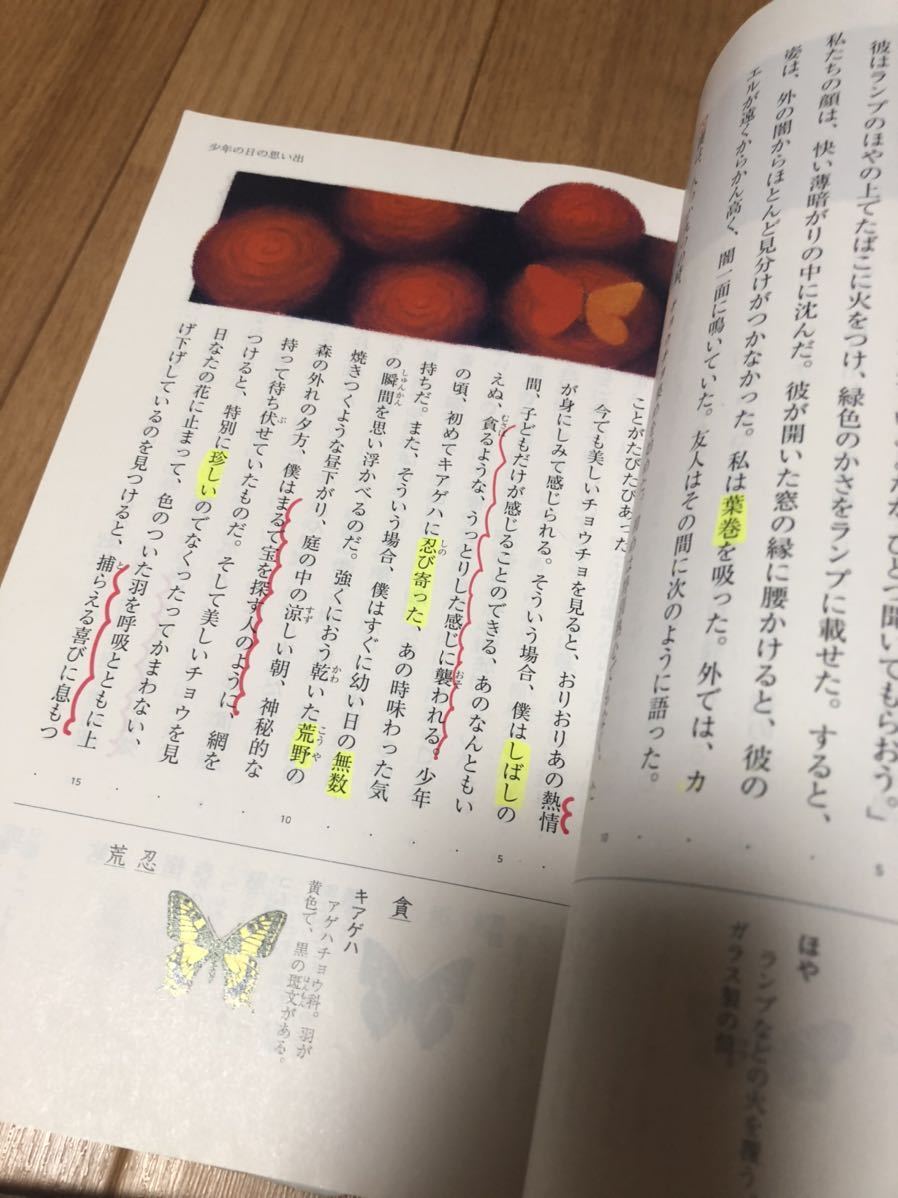 彼はランプのほやの上でたばこに火をつけ、緑色のかさをランプに載せた。すると、
私たちの顔は、快い薄暗がりの中に沈んだ。彼が開いた窓の縁に腰かけると、彼の
姿は、外の闇からほとんど見分けがつかなかった。私は葉巻を吸った。外では、カ
エルが遠くからかん高く、闇一面に鳴いていた。友人はその間に次のように語った。
5
10
ほや
ランプなどの火を覆う
ガラス製の筒。
少年の日の思い出
ことがたびたびあった
今でも美しいチョウチョを見ると、おりおりあの熱情
が身にしみて感じられる。そういう場合、僕はしばしの
間、子どもだけが感じることのできる、あのなんともい
えぬ、貪るような、うっとりした感じに襲われる。少年
の頃、初めてキアゲハに忍び寄った、あの時味わった気
持ちだ。また、そういう場合、僕はすぐに幼い日の無数
の瞬間を思い浮かべるのだ。強くにおう乾いた荒野の
焼きつくような昼下がり、庭の中の涼しい朝、神秘的な
森の外れの夕方、僕はまるで宝を探す人のように、網を
持って待ち伏せていたものだ。そして美しいチョウを見
つけると、特別に珍しいのでなくったってかまわない、
日なたの花に止まって、色のついた羽を呼吸とともに上
げ下げしているのを見つけると、捕らえる喜びに息もつ
5
10
15
貪
キアゲハ
アゲハチョウ科。羽が
黄色で、黒の斑文がある。
忍
荒